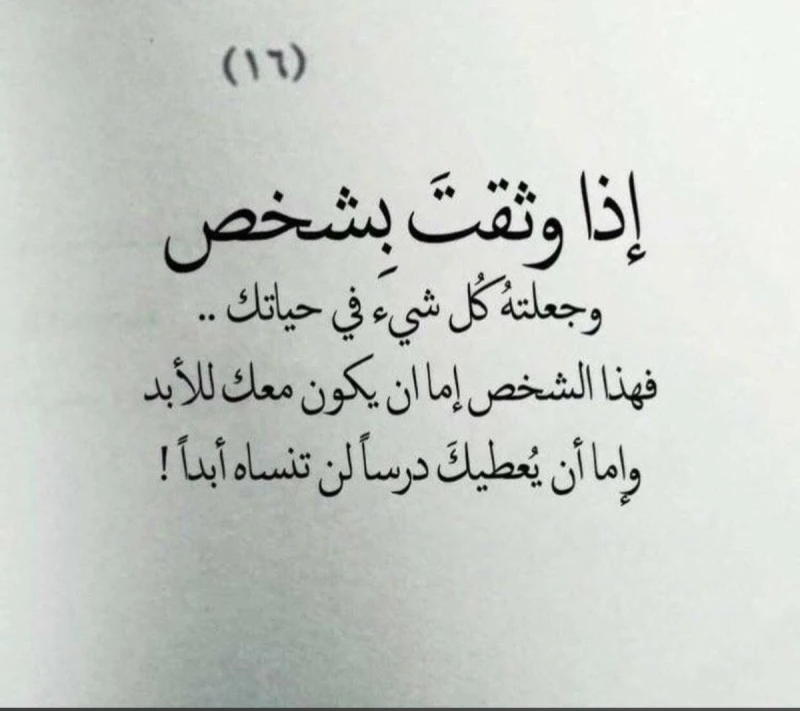 (١٦)
إذا وثقتَ بِشخص
وجعلتهُ كُل شيء في حياتك ..
فهذا الشخص إما ان يكون معك للأبد
وإما أن يُعطيكَ درساً لن تنساه أبداً !